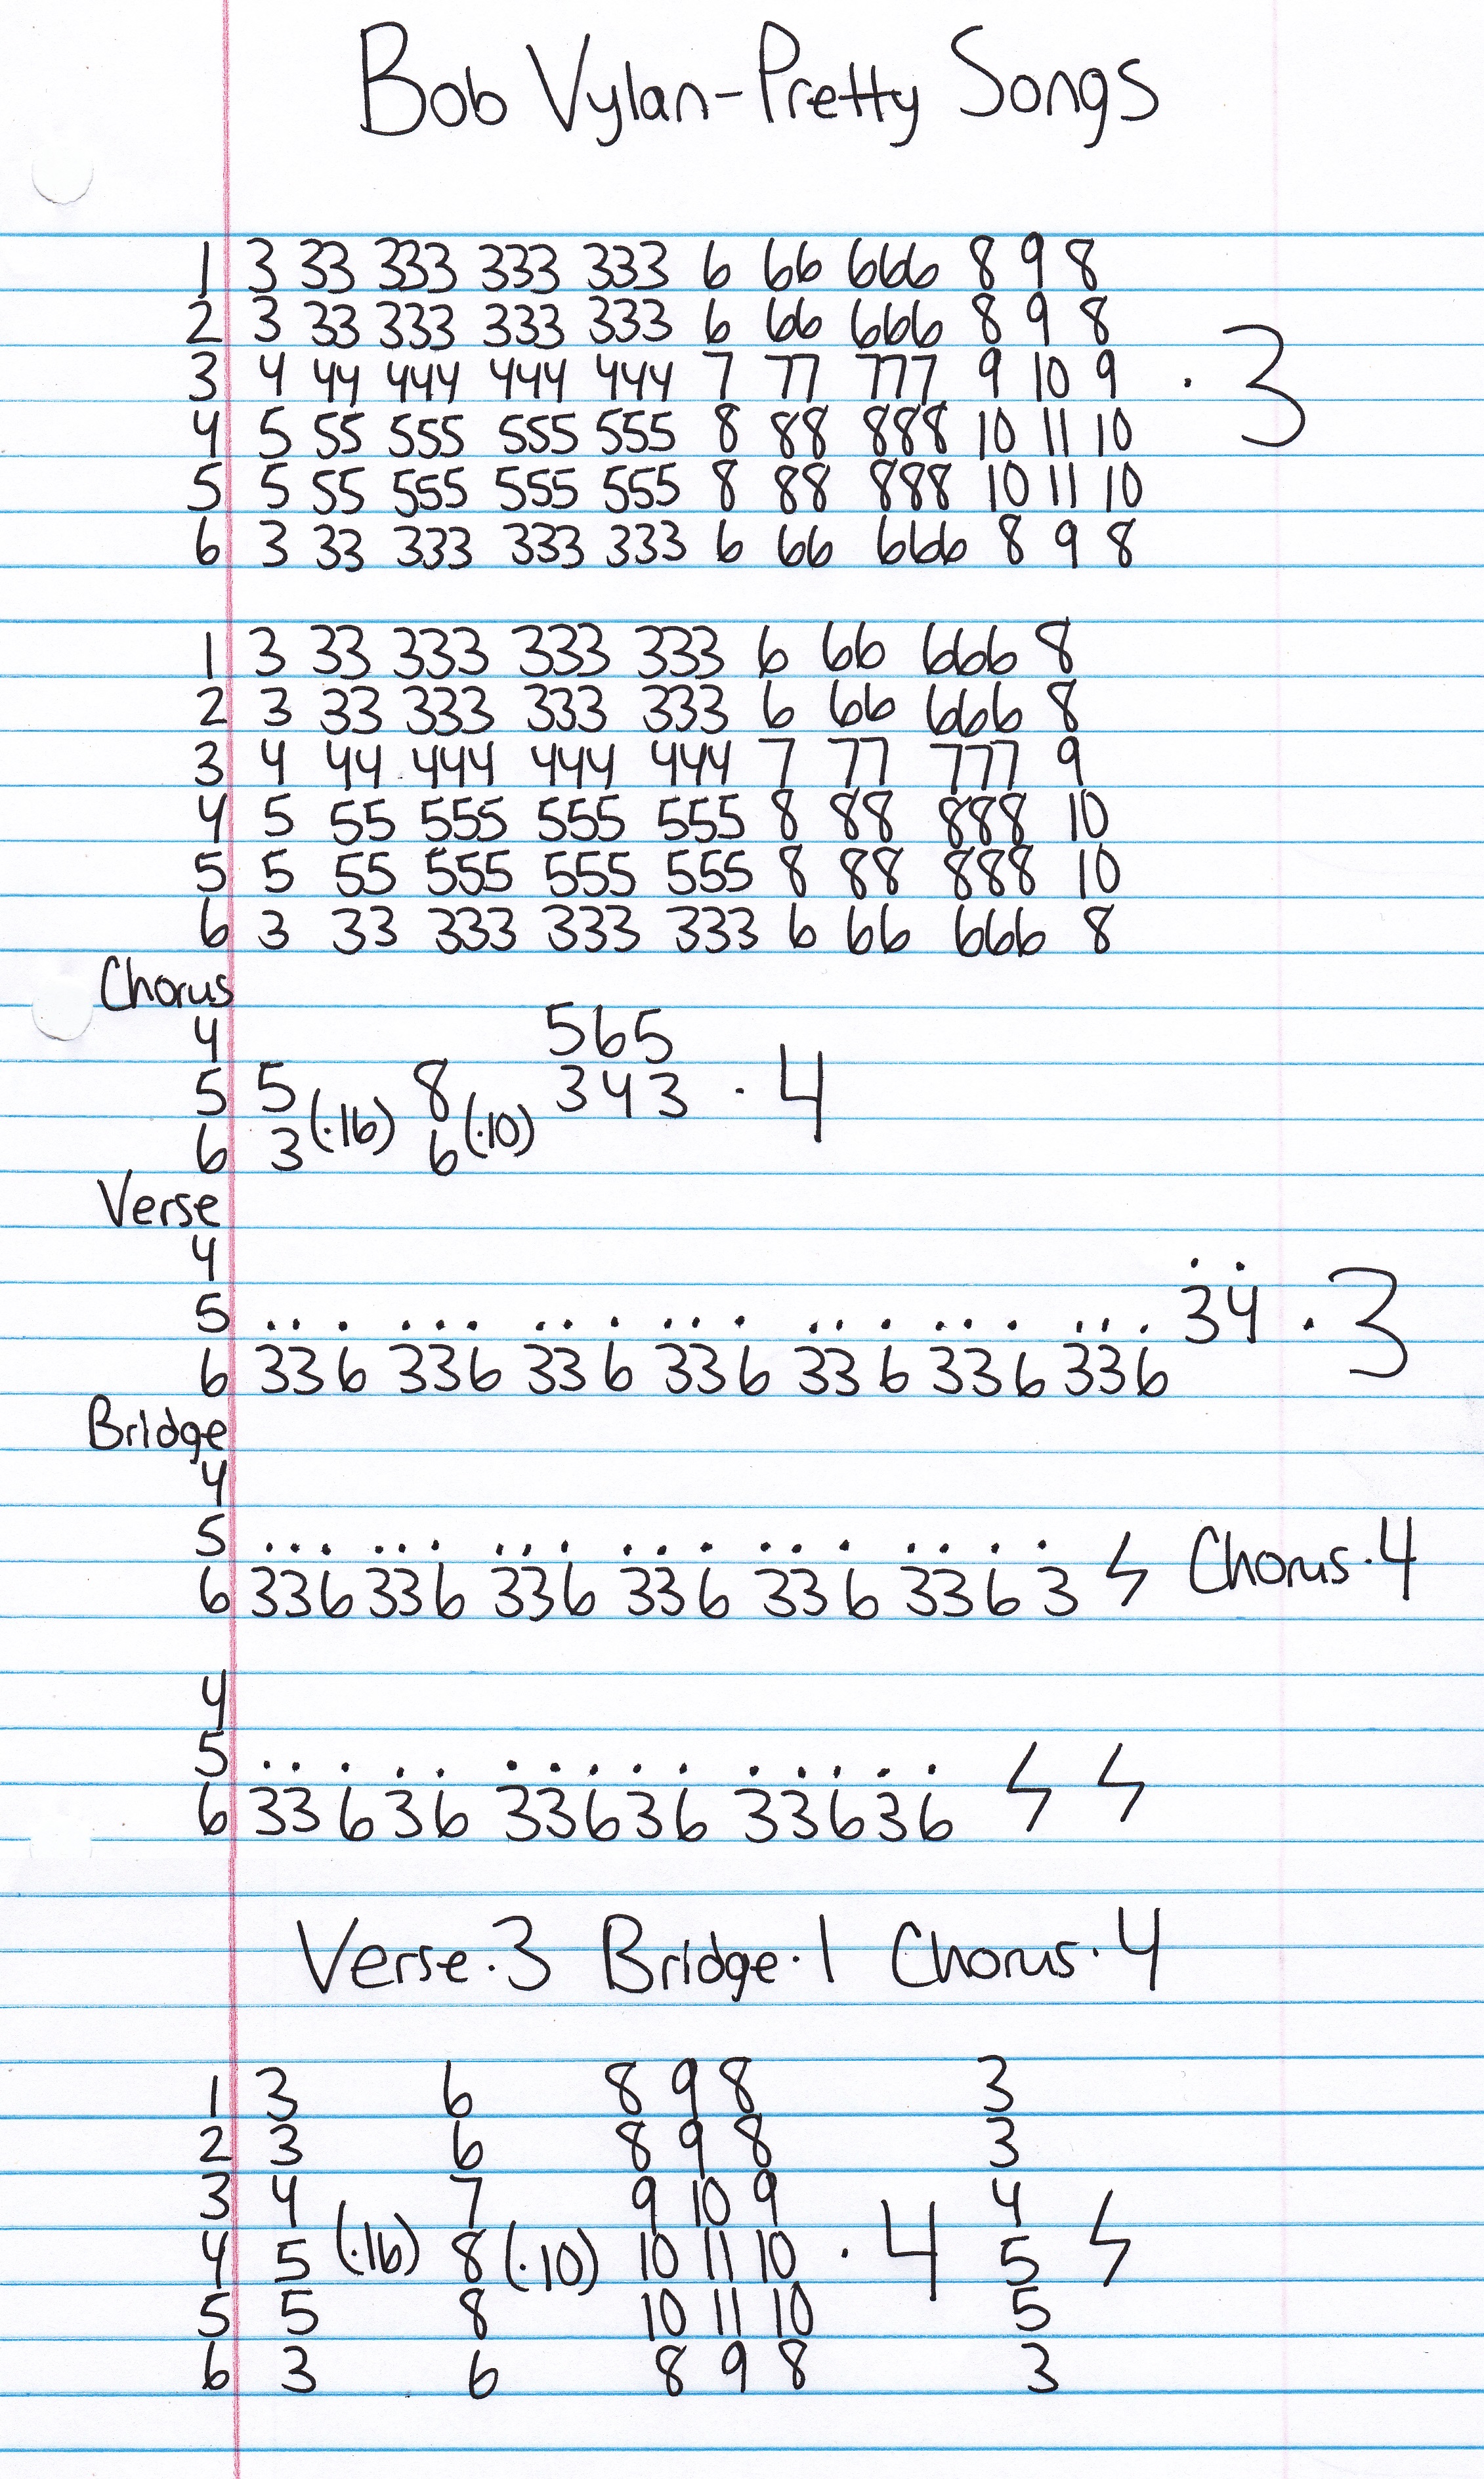 Bob Vylan-Pretty Songs
1 3 33 333 333 333 6 66 666 8 9 8
2 3 33 333 333 333 6 66 666 8 9 8
3 4 44 444 444 444 7 77 777 9 10 9 · 3
4 5 55 555 555 555 8 88 888 10 11 10
5 5 55 555 555 555 8 88 888 10 11 10
6 3 33 333 333 333 6 66 666 8 9 8
1 3 33 333 333 333 6 66 666 8
2 3 33 333 333 333 6 66 666 8
3 4 44 444 444 444 7 77 777 9
4 5 55 555 555 555 8 88 888 10
5 5 55 555 555 555 8 88 888 10
6 3 33 333 333 333 6 66 666 8
Chorus
4 565
5 5 (·16) 8 (·10) 343 · 4
6 3 6
Verse
4 . .
5 . . . . . . . . . . . . . . . . . . . . . 34 · 3
6 336 336 336 336 336 336 336
Bridge
4
5 . . . . . . . . . . . . . . . . . . .
6 336 336 336 336 336 3363 ϟ Chorus·4
4
5 . . . . . . . . . . . . . . .
6 33636 33636 33636 ϟ ϟ
Verse·3 Bridge·1 Chorus·4
1 3 6 8 9 8 3
2 3 6 8 9 8 3
3 4 7 9 10 9 4
4 5 (·16) 8 (·10) 10 11 10 · 4 5 ϟ
5 5 8 10 11 10 5
6 3 6 8 9 8 3